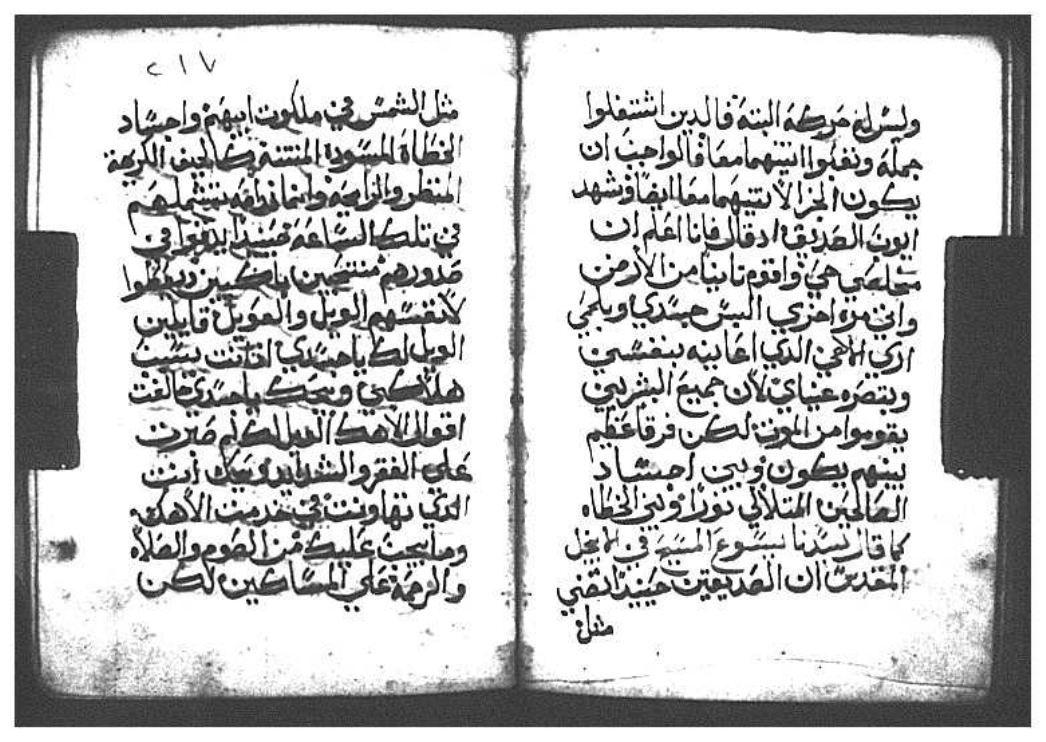 وليس له حركه البته فالدين اشتغلوا
جمله وتعبوا اتنيهما معا فالواجب ان
يكون الجزا لاتنيهما معا ايضا وشهد
ايوب الصديق ادقال فانا اعلم ان
مخلصي حي واقوم تانيا من الأرض
واني مره اخري البس جسدي وبلحمي
اري الاهي الدي اعاينه بنفسي
وتنصره عيناي لأن جميع البشريين
يقوموا من الموت لكن فرقا عظيم
بينهم يكون وبين اجساد
الصالحين المتلألي نورا وبين الخطاه
كما قال لسيدنا يسوع المسيح في الانجيل
المقدس ان الصديقين حينيدا تضي
مثل
٢١٧
مثل الشمس في ملكوت ابيهم واجساد
الخطاة المسودة المنتنة كالجيف الكريهة
المنظر والرايحه وانما ندامه تشملهم
في تلك الساعه حينيدا يدقوا في
صدورهم منتحبين باكيين ويعطوا
لأنفسهم الويل والعويل قايلين
الويل لك ياجسدي ادانت بسببت
هلاكي ويحك ياجسدي خالفت
اقوال الاهك الويل لك لم صبرت
علي الفقر والشدايد ويحك أنت
الدي تهاونت في خدمت الأهك
وما يجب عليك من الصوم والصلاه
والرحمة علي المساكين لكن